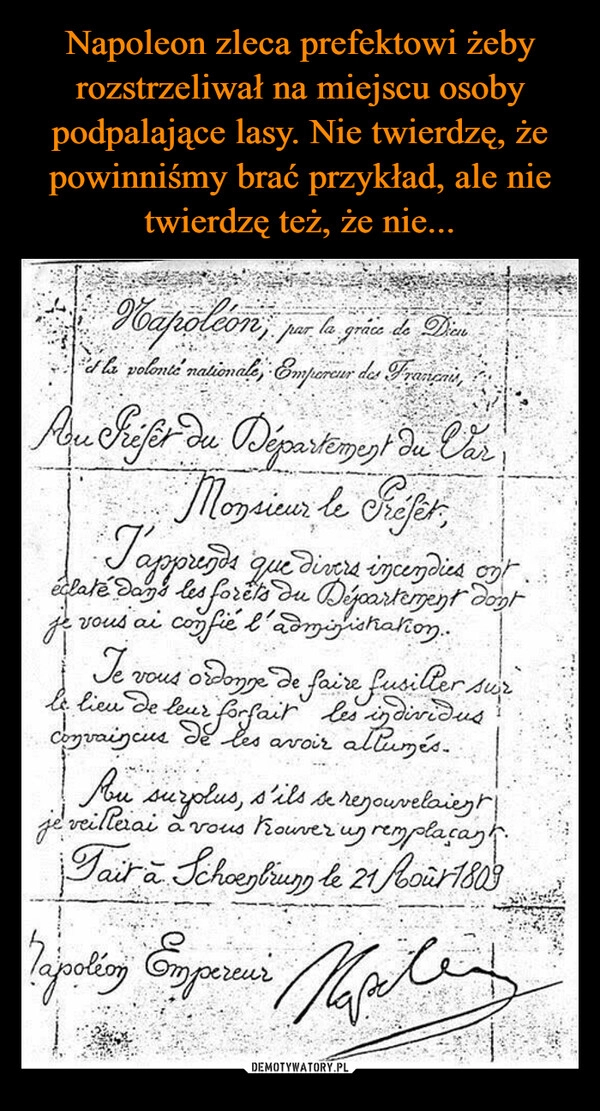 Napoleon zleca prefektowi żeby
rozstrzeliwał na miejscu osoby
podpalające lasy. Nie twierdzę, że
powinniśmy brać przykład, ale nie
twierdzę też, że nie...
Napoléon, par la grâce de Dieu
et la volonté nationale, Empereur des Français,
Au Préfêt du Département du Var
Monsieur le Préfêt,
J'apprends que divers incendies ont
éclaté dans les forêts du Département dont
je vous ai confié l'administration.
Je vous ordonne de faire fusiller sur
le lieu de leur forfait les individus
convaincus de les avoir allumés.
Au surplus, s'ils se renouvelaient
je veillerai à vous trouver un remplaçant.
Fait à Schoenbrunn le 21 Août 1809
Napoléon Empereur
Napoleon
DEMOTYWATORY.PL